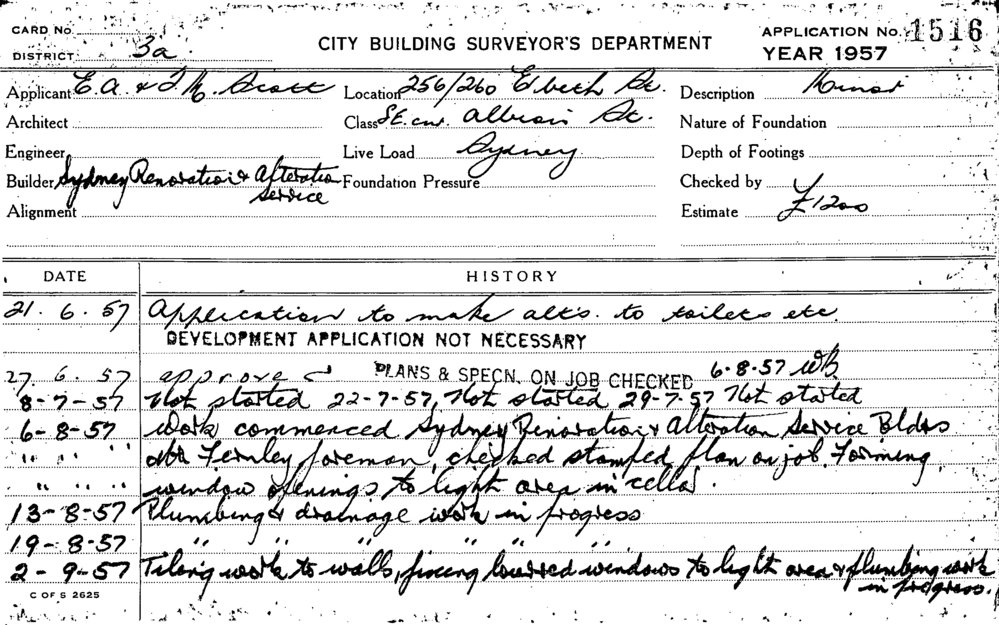 CARD No.
DISTRICT 3a
CITY BUILDING SURVEYOR'S DEPARTMENT
APPLICATION No. 1516
YEAR 1957
Applicant E. A. & J. M. Scott
Location 256/260 E'beth St.
Description Minor
Architect
Class S.E. cnr. Albion St.
Nature of Foundation
Engineer
Live Load Sydney
Depth of Footings
Builder Sydney Renovation & Alteration Service
Foundation Pressure
Checked by
Alignment
Estimate £1200
DATE HISTORY
21. 6. 57 Application to make alts. to toilets etc.
DEVELOPMENT APPLICATION NOT NECESSARY
27. 6. 57 approved PLANS & SPECN. ON JOB CHECKED 6-8-57 WB
8-7-57 Not started 22-7-57, Not started 29-7-57 Not started
6-8-57 Work commenced Sydney Renovation & Alteration Service Bldrs
" " " Fernley foreman, checked stamped plan on job. Forming
" " " window openings to light area in cellar.
13-8-57 Plumbing & drainage work in progress
19-8-57 " " " " "
2-9-57 Tiling work to walls, fixing louvred windows to light area & plumbing work
in progress.
C OF S 2625